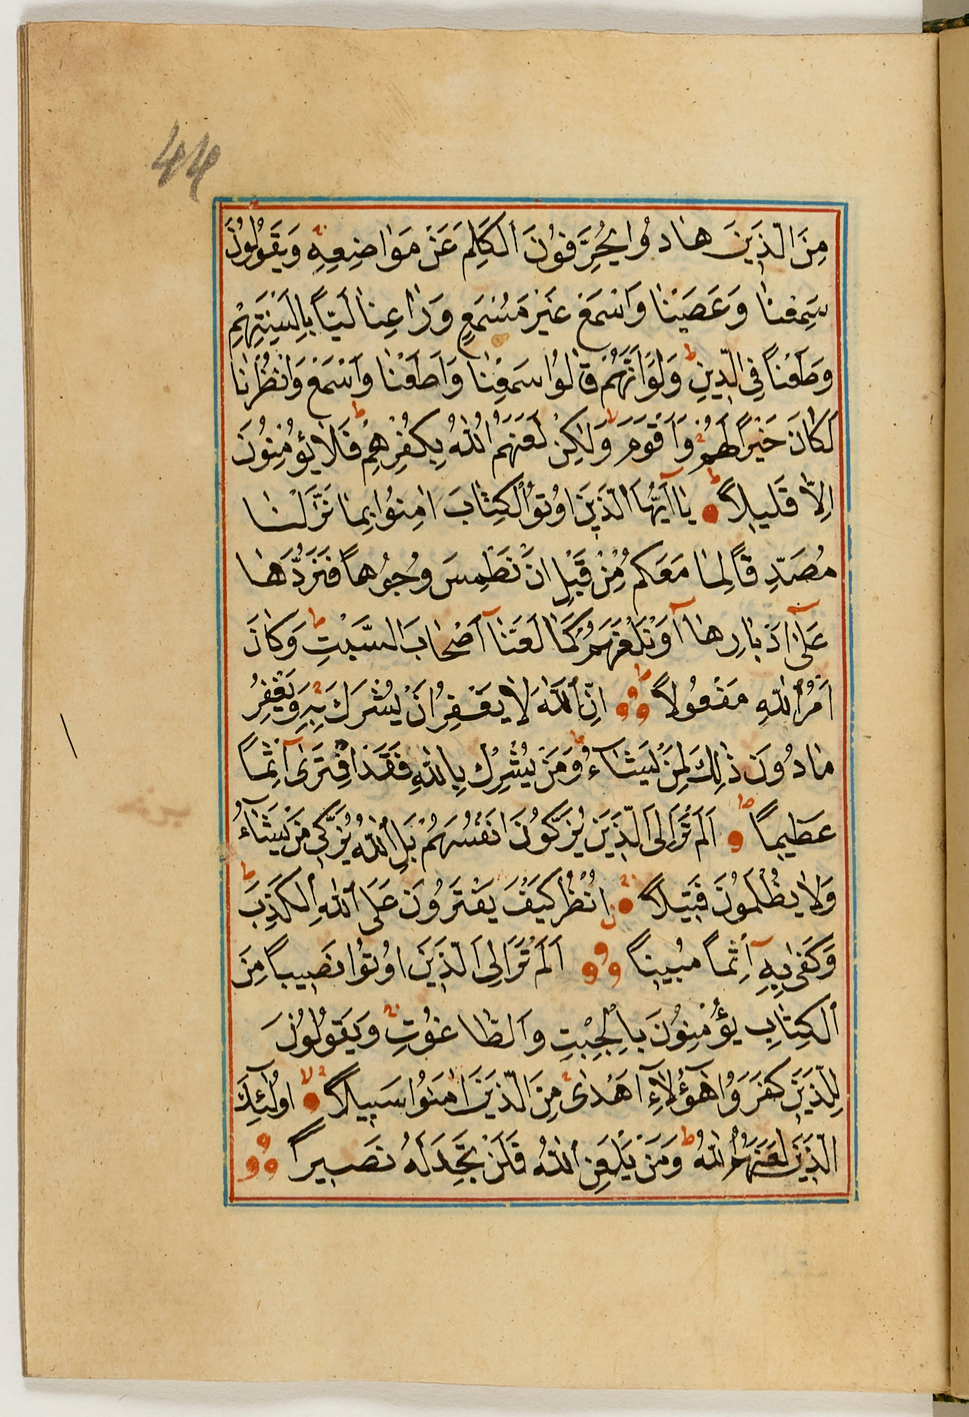 44
مِنَ الَّذِينَ هَادُوا يُحَرِّفُونَ الْكَلِمَ عَنْ مَوَاضِعِهِ وَيَقُولُونَ
سَمِعْنَا وَعَصَيْنَا وَاسْمَعْ غَيْرَ مُسْمَعٍ وَرَاعِنَا لَيًّا بِأَلْسِنَتِهِمْ
وَطَعْنًا فِي الدِّينِ وَلَوْ أَنَّهُمْ قَالُوا سَمِعْنَا وَأَطَعْنَا وَاسْمَعْ وَانْظُرْنَا
لَكَانَ خَيْرًا لَهُمْ وَأَقْوَمَ وَلَكِنْ لَعَنَهُمُ اللَّهُ بِكُفْرِهِمْ فَلَا يُؤْمِنُونَ
إِلَّا قَلِيلًا يَا أَيُّهَا الَّذِينَ أُوتُوا الْكِتَابَ آمِنُوا بِمَا نَزَّلْنَا
مُصَدِّقًا لِمَا مَعَكُمْ مِنْ قَبْلِ أَنْ نَطْمِسَ وُجُوهًا فَنَرُدَّهَا
عَلَى أَدْبَارِهَا أَوْ نَلْعَنَهُمْ كَمَا لَعَنَّا أَصْحَابَ السَّبْتِ وَكَانَ
أَمْرُ اللَّهِ مَفْعُولًا إِنَّ اللَّهَ لَا يَغْفِرُ أَنْ يُشْرَكَ بِهِ وَيَغْفِرُ
مَا دُونَ ذَلِكَ لِمَنْ يَشَاءُ وَمَنْ يُشْرِكْ بِاللَّهِ فَقَدِ افْتَرَى إِثْمًا
عَظِيمًا أَلَمْ تَرَ إِلَى الَّذِينَ يُزَكُّونَ أَنْفُسَهُمْ بَلِ اللَّهُ يُزَكِّي مَنْ يَشَاءُ
وَلَا يُظْلَمُونَ فَتِيلًا انْظُرْ كَيْفَ يَفْتَرُونَ عَلَى اللَّهِ الْكَذِبَ
وَكَفَى بِهِ إِثْمًا مُبِينًا أَلَمْ تَرَ إِلَى الَّذِينَ أُوتُوا نَصِيبًا مِنَ
الْكِتَابِ يُؤْمِنُونَ بِالْجِبْتِ وَالطَّاغُوتِ وَيَقُولُونَ
لِلَّذِينَ كَفَرُوا هَؤُلَاءِ أَهْدَى مِنَ الَّذِينَ آمَنُوا سَبِيلًا أُولَئِكَ
الَّذِينَ لَعَنَهُمُ اللَّهُ وَمَنْ يَلْعَنِ اللَّهُ فَلَنْ تَجِدَ لَهُ نَصِيرًا